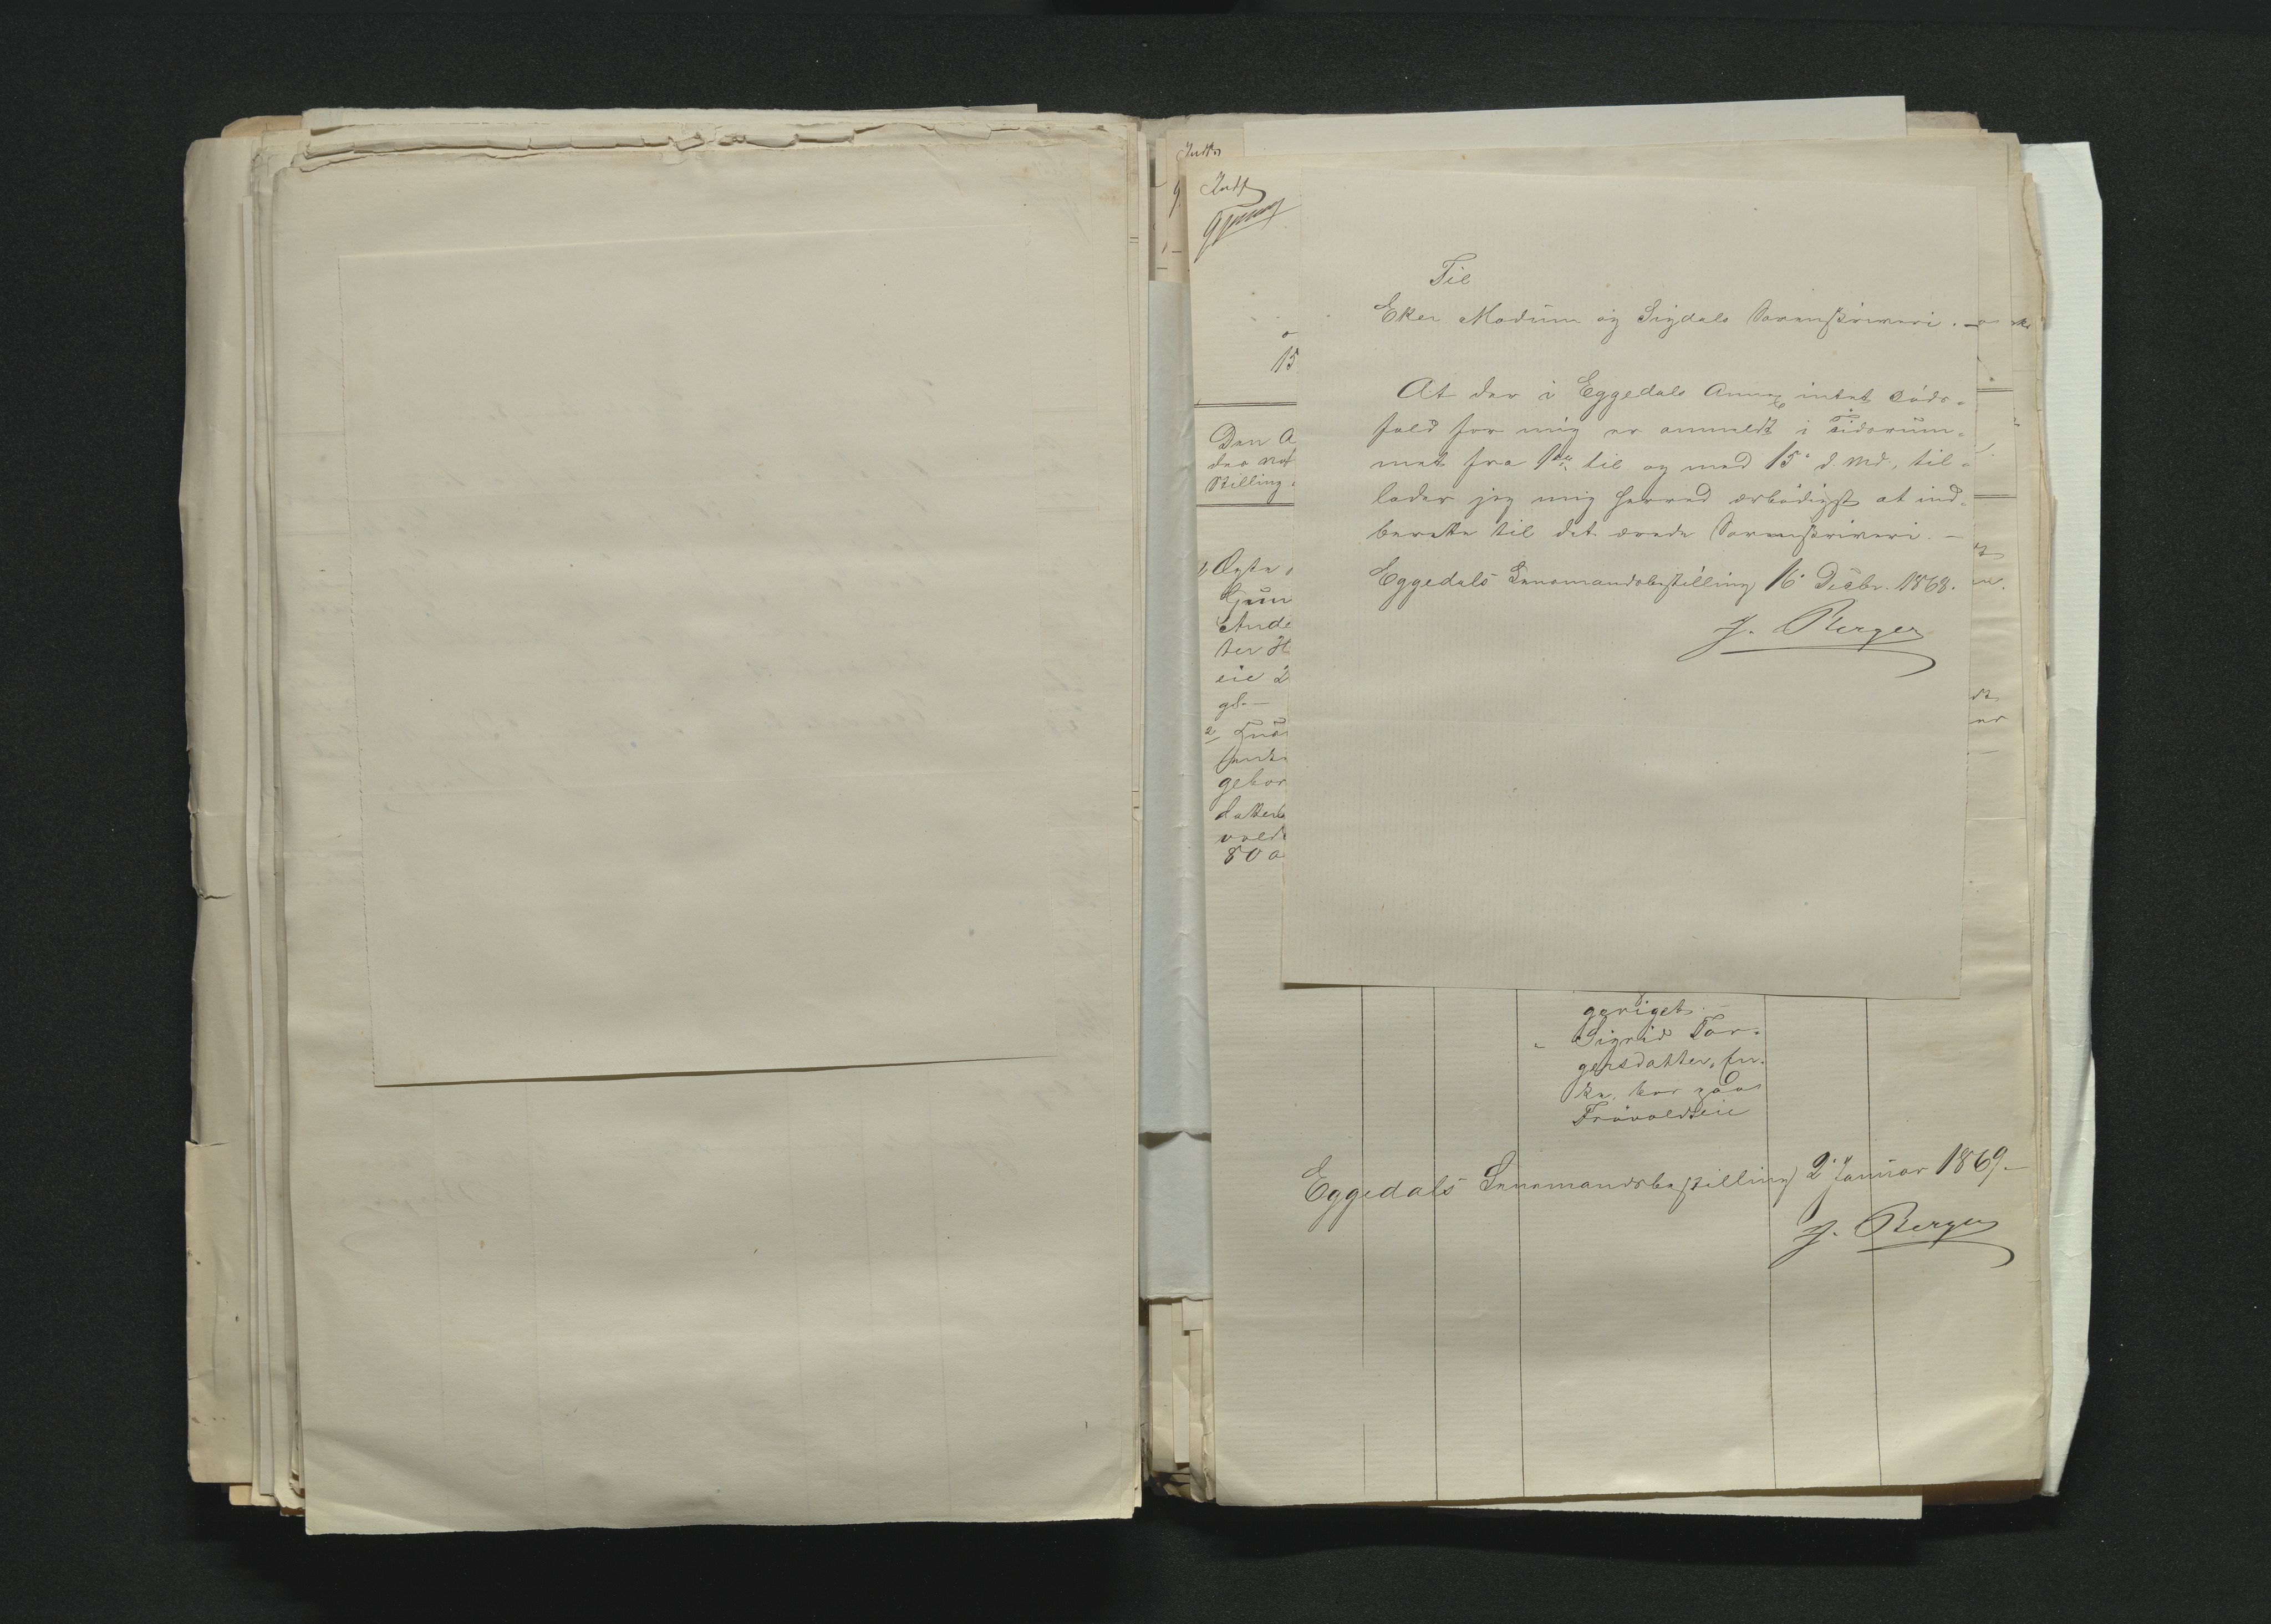 Til
Eker Modum og Sigdals Sorenskriveri. —
At der i Eggedals Annex intet Døds-
fald for mig er anmeldt i Tidsrum-
met fra 1ste til og med 15. d. Md, til-
lader jeg mig herved ærbødigst at ind-
berette til det ærede Sorenskriveri. —
Eggedals Lensmandsbestilling 16. Decbr. 1868.
J. Berger
15
Den A
des
Stilling
Gun
Ande
ter H
eie 2
gl. —
2
gebor
datter
vold
80 a
Sigrid Tor-
gersdatter, En-
ke, bor paa
Frøvoldseie
Eggedals Lensmandsbestilling 2. Januar 1869. —
J. Berger